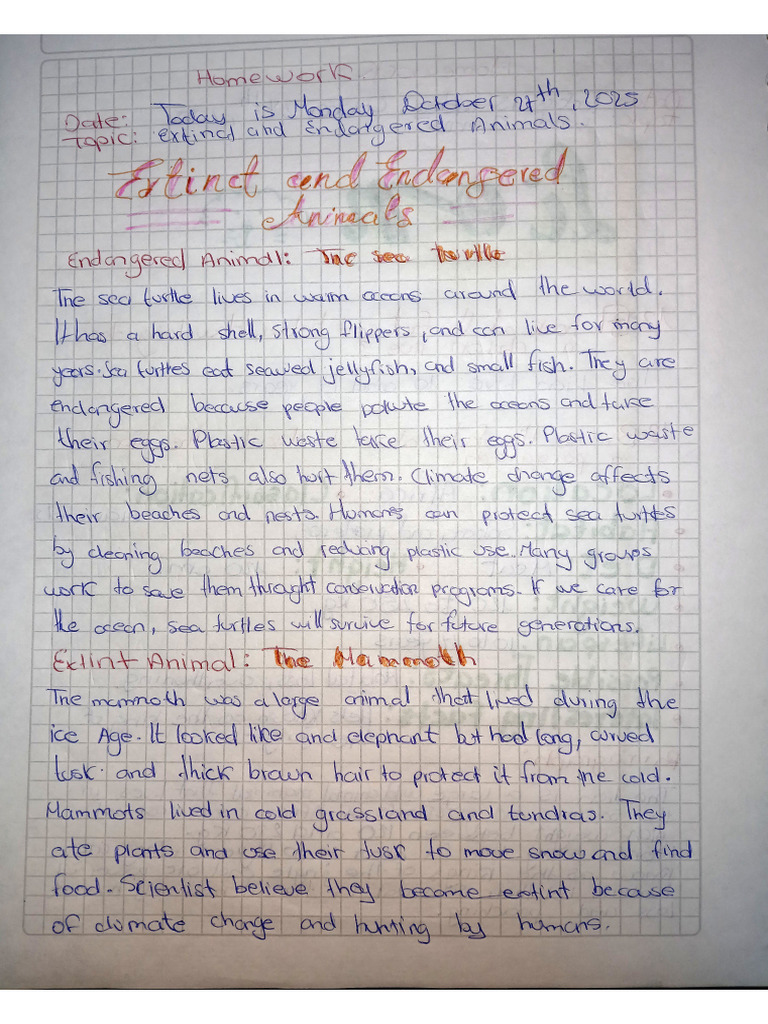 Homework
Date: Today is Monday October 27th, 2025
Topic: extinct and Endangered Animals.
Extinct and Endangered
Animals
Endangered Animal: The sea turtle
The sea turtle lives in warm oceans around the world.
It has a hard shell, strong flippers, and can live for many
years. Sea turtles eat seawed jellyfish, and small fish. They are
endangered because people polute the oceans and take
their eggs. Plastic waste take their eggs. Plastic waste
and fishing nets also hurt them. Climate change affects
their beaches and nests. Humans can protect sea turtles
by cleaning beaches and reducing plastic use. Many groups
work to save them throught conservation programs. If we care for
the ocean, sea turtles will survive for future generations.
Extint Animal: The Mammoth
The mammoth was a large animal that lived during the
ice Age. It looked like and elephant but had long, curved
tusk and thick brown hair to protect it from the cold.
Mammots lived in cold grassland and tundras. They
ate plants and use their tusk to move snow and find
food. Scientist believe they become extint because
of climate change and hunting by humans.